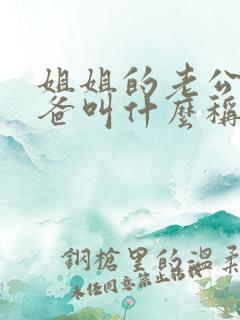 姐姐的老公
爸叫什麼稱
鋼槍里的溫柔
未任同意禁止轉載